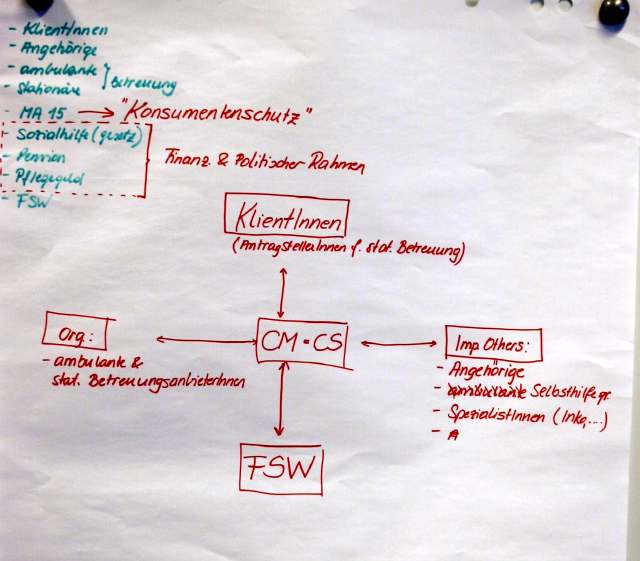 - KlientInnen
- Angehörige
- ambulante
- stationäre } Betreuung
- MA 15 → "Konsumentenschutz"
- Sozialhilfe (gesetz)
- Pension
- Pflegegeld
Finanz & Politischer Rahmen
- FSW
KlientInnen
(AntragstellerInnen f. stat. Betreuung)
Org:
- ambulante &
stat. BetreuungsanbieterInnen
CM - CS
Imp. Others:
- Angehörige
- Selbsthilfegr.
- SpezialistInnen (Inko,...)
- A
FSW